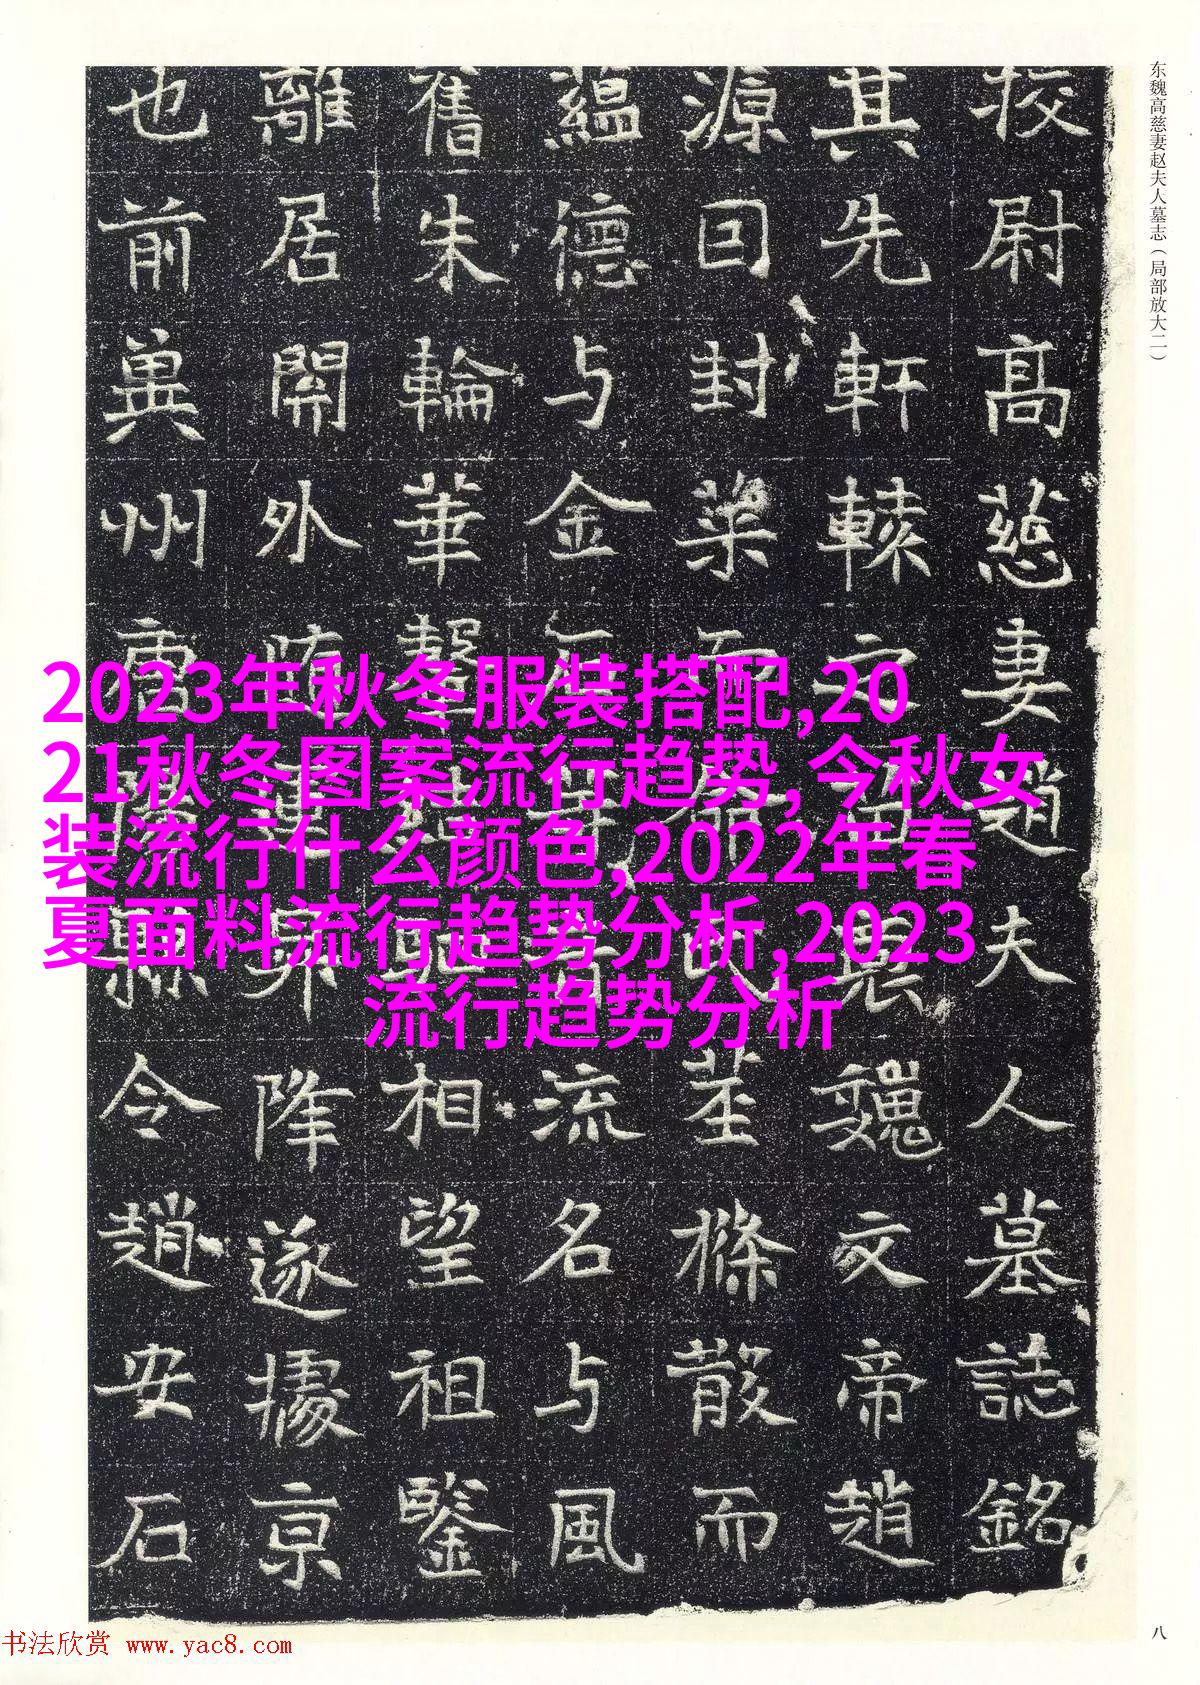 东魏高慈妻赵夫人墓志（局部放大二）
挍尉高慈妻趙夫人墓誌銘
其先軒轅之魏文帝趙
源囙封而莖條散而
蘊德与金流名与風
舊朱輪華相望祖鑒
離居開外降遂據京
也前冀州令趙安石
2023年秋冬服装搭配,20
21秋冬图案流行趋势,今秋女
装流行什么颜色,2022年春
夏面料流行趋势分析,2023
流行趋势分析
八
书法欣赏 www.yac8.com